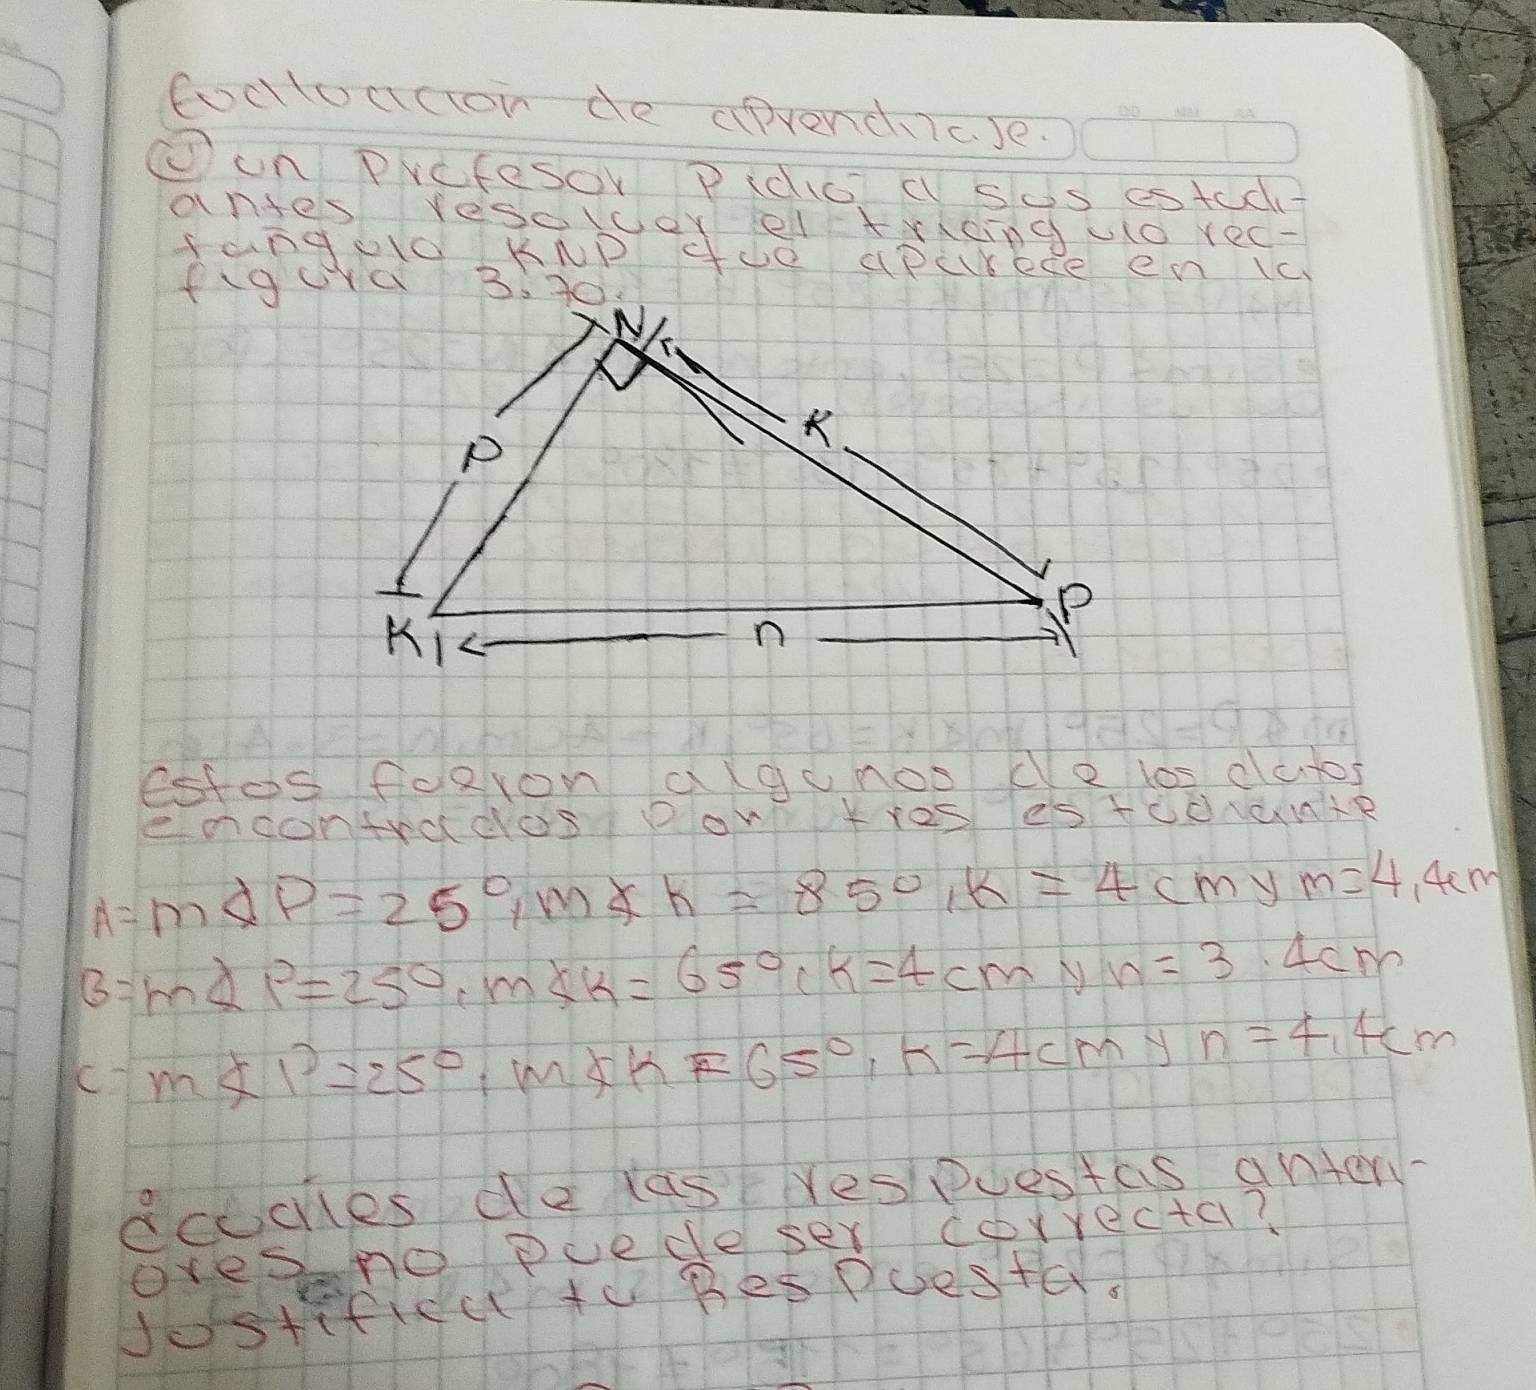 Evaluación de aprendizaje.
① un profesor pidió a sus estudi-
antes resolver el triángulo rec-
tángulo KNP que aparece en la
figura 3.70.
N
K
P
P
K
n
Estos fueron algunos de los datos
encontrados por tres estudiante
A=m∡P=25°, m∡K=85°, K=4cm y m=4,4cm
B=m∡P=25°, m∡K=65°, K=4cm y n=3.4cm
C=m∡P=25°, m∡K=65°, K=4cm y n=4,4cm
¿cuáles de las respuestas anteri-
ores no puede ser correcta?
Justifica tu Respuesta.